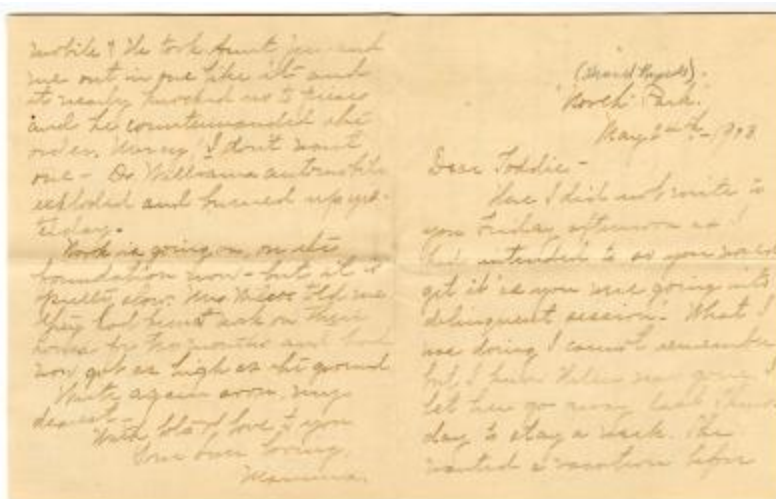 mobile? He took Aunt Jen and
me out in one like it and
it nearly knocked us to pieces
and he countermanded the
order. Mercy, I don't want
one - Dr Williams automobile
exploded and burned up yes-
terday.
Work is going on, on the
foundation now - but it is
slow. Mrs told me
they had been at work on their
home for two months and had
now got as high as the ground
Write again soon, my
dearest -
With lots of love to you
Your ever loving,
Mamma.
North Park.
May
Dear Toddie -
Here I did not write to
you Friday afternoon as I
had intended to so you would
get it as you were going into
delinquent session. What I
was doing I cannot remember
but I know Helen was gone. I
let her go away last Thurs
day to stay a week. She
wanted a vacation before